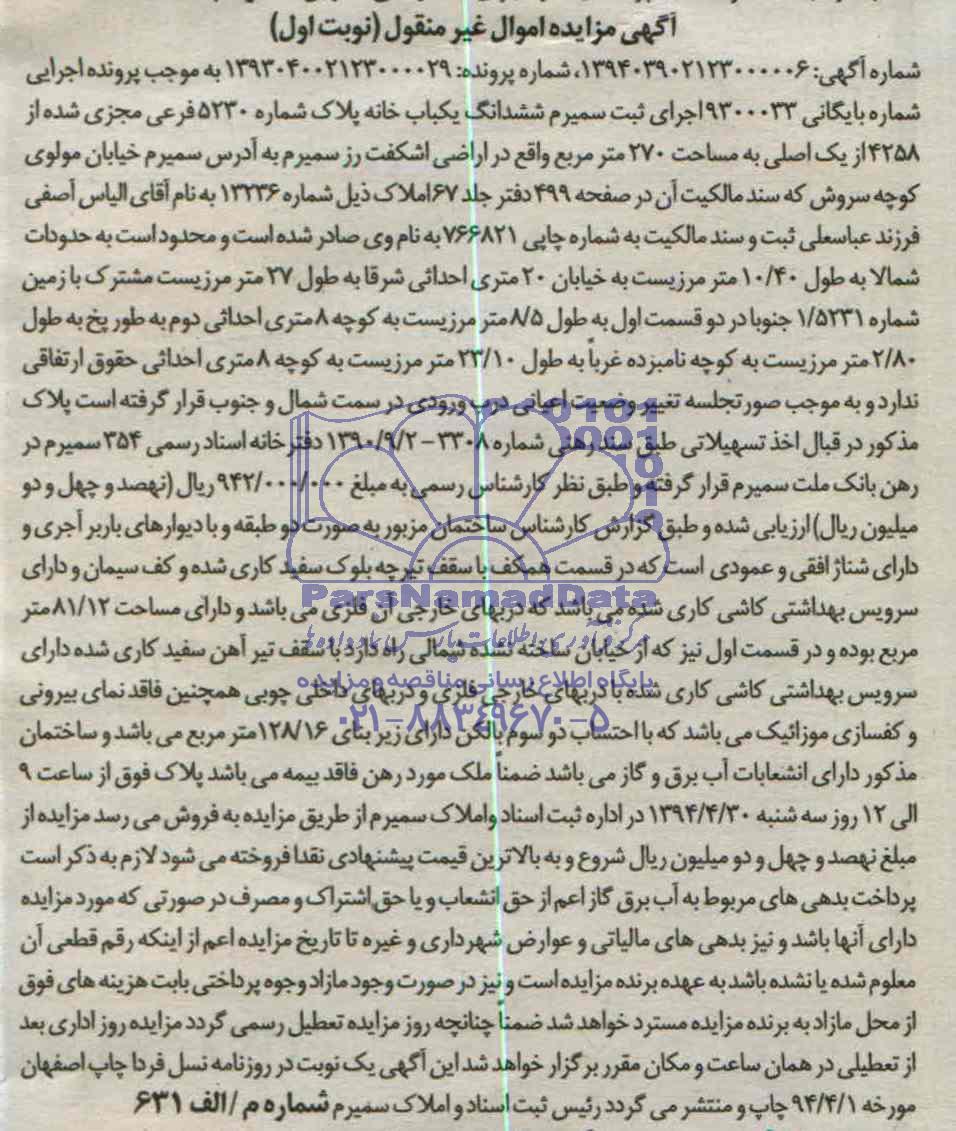 آگهی مزایده اموال غیر منقول (نوبت اول)
شماره آگهی: ۱۳۹۴۰۳۹۰۲۱۲۳۰۰۰۰۰۶، شماره پرونده: ۱۳۹۳۰۴۰۰۲۱۲۳۰۰۰۰۲۹ به موجب پرونده اجرایی
شماره بایگانی ۹۳۰۰۰۳۳ اجرای ثبت سمیرم ششدانگ یکباب خانه پلاک شماره ۵۲۳۰ فرعی مجزی شده از
۴۲۵۸ از یک اصلی به مساحت ۲۷۰ متر مربع واقع در اراضی اشکفت رز سمیرم به آدرس سمیرم خیابان مولوی
کوچه سروش که سند مالکیت آن در صفحه ۴۹۹ دفتر جلد ۶۷ املاک ذیل شماره ۱۳۲۳۶ به نام آقای الیاس آصفی
فرزند عباسعلی ثبت و سند مالکیت به شماره چاپی ۷۶۶۸۲۱ به نام وی صادر شده است و محدود است به حدودات
شمالا به طول ۱۰/۴۰ متر مرزیست به خیابان ۲۰ متری احداثی شرقا به طول ۲۷ متر مرزیست مشترک با زمین
شماره ۱/۵۲۳۱ جنوبا در دو قسمت اول به طول ۸/۵ متر مرزیست به کوچه ۸ متری احداثی دوم به طور پخ به طول
۲/۸۰ متر مرزیست به کوچه نامبرده غرباً به طول ۲۳/۱۰ متر مرزیست به کوچه ۸ متری احداثی حقوق ارتفاقی
ندارد و به موجب صورتجلسه تغییر وضعیت اعیانی درب ورودی در سمت شمال و جنوب قرار گرفته است پلاک
مذکور در قبال اخذ تسهیلاتی طبق سند رهنی شماره ۳۳۰۸ - ۱۳۹۰/۹/۲ دفترخانه اسناد رسمی ۳۵۴ سمیرم در
رهن بانک ملت سمیرم قرار گرفته و طبق نظر کارشناس رسمی به مبلغ ۹۴۲/۰۰۰/۰۰۰ ریال (نهصد و چهل و دو
میلیون ریال) ارزیابی شده و طبق گزارش کارشناس ساختمان مزبور به صورت دو طبقه و با دیوارهای باربر آجری و
دارای شناژ افقی و عمودی است که در قسمت همکف با سقف تیرچه بلوک سفید کاری شده و کف سیمان و دارای
سرویس بهداشتی کاشی کاری شده می باشد که دربهای خارجی آن فلزی می باشد و دارای مساحت ۸۱/۱۲ متر
مربع بوده و در قسمت اول نیز که از خیابان ساخته نشده شمالی راه دارد با سقف تیر آهن سفید کاری شده دارای
سرویس بهداشتی کاشی کاری شده با دربهای خارجی فلزی و دربهای داخلی چوبی همچنین فاقد نمای بیرونی
و کفسازی موزائیک می باشد که با احتساب دو سوم بالکن دارای زیر بنای ۱۲۸/۱۶ متر مربع می باشد و ساختمان
مذکور دارای انشعابات آب برق و گاز می باشد ضمناً ملک مورد رهن فاقد بیمه می باشد پلاک فوق از ساعت ۹
الی ۱۲ روز سه شنبه ۱۳۹۴/۴/۳۰ در اداره ثبت اسناد و املاک سمیرم از طریق مزایده به فروش می رسد مزایده از
مبلغ نهصد و چهل و دو میلیون ریال شروع و به بالاترین قیمت پیشنهادی نقدا فروخته می شود لازم به ذکر است
پرداخت بدهی های مربوط به آب برق گاز اعم از حق انشعاب و یا حق اشتراک و مصرف در صورتی که مورد مزایده
دارای آنها باشد و نیز بدهی های مالیاتی و عوارض شهرداری و غیره تا تاریخ مزایده اعم از اینکه رقم قطعی آن
معلوم شده یا نشده باشد به عهده برنده مزایده است و نیز در صورت وجود مازاد وجوه پرداختی بابت هزینه های فوق
از محل مازاد به برنده مزایده مسترد خواهد شد ضمنا چنانچه روز مزایده تعطیل رسمی گردد مزایده روز اداری بعد
از تعطیلی در همان ساعت و مکان مقرر برگزار خواهد شد این آگهی یک نوبت در روزنامه نسل فردا چاپ اصفهان
مورخه ۹۴/۴/۱ چاپ و منتشر می گردد رئیس ثبت اسناد و املاک سمیرم شماره م / الف ۶۳۱
ParsNamadData
مرکز فرآوری اطلاعات پارس نماد داده ها
پایگاه اطلاع رسانی مناقصه و مزایده
۰۲۱-۸۸۳۴۹۶۷۰-۵